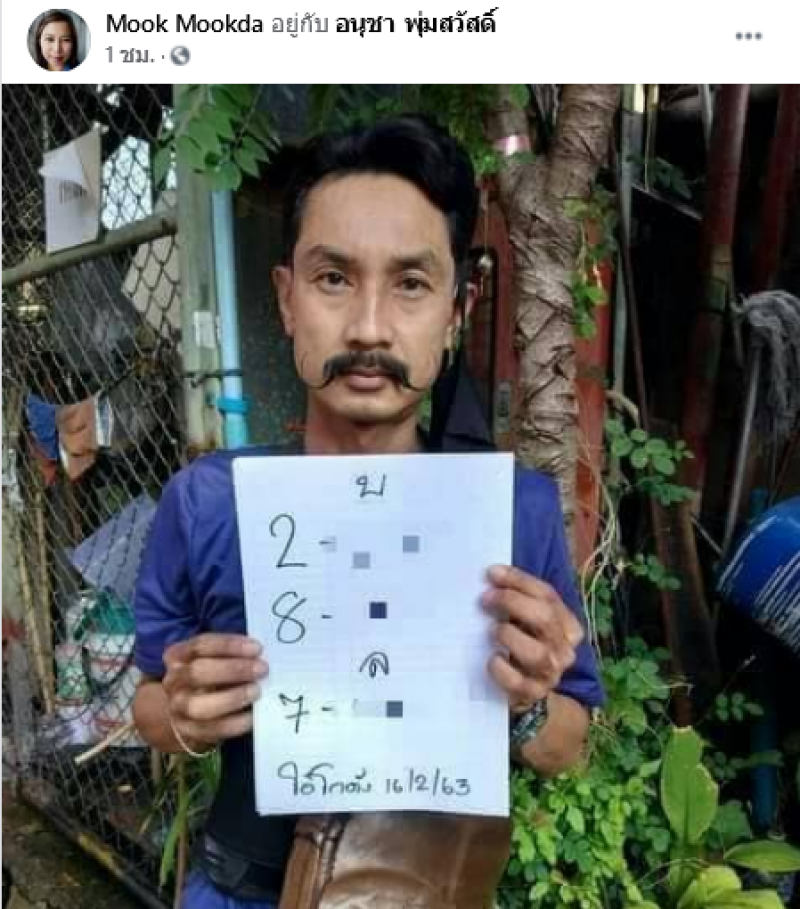 Mook Mookda อยู่กับ อนุชา พุ่มสวัสดิ์
1 ชม. ·
บ
2 -
8 -
ล
7 -
ไอ้โกดัง 16/2/63